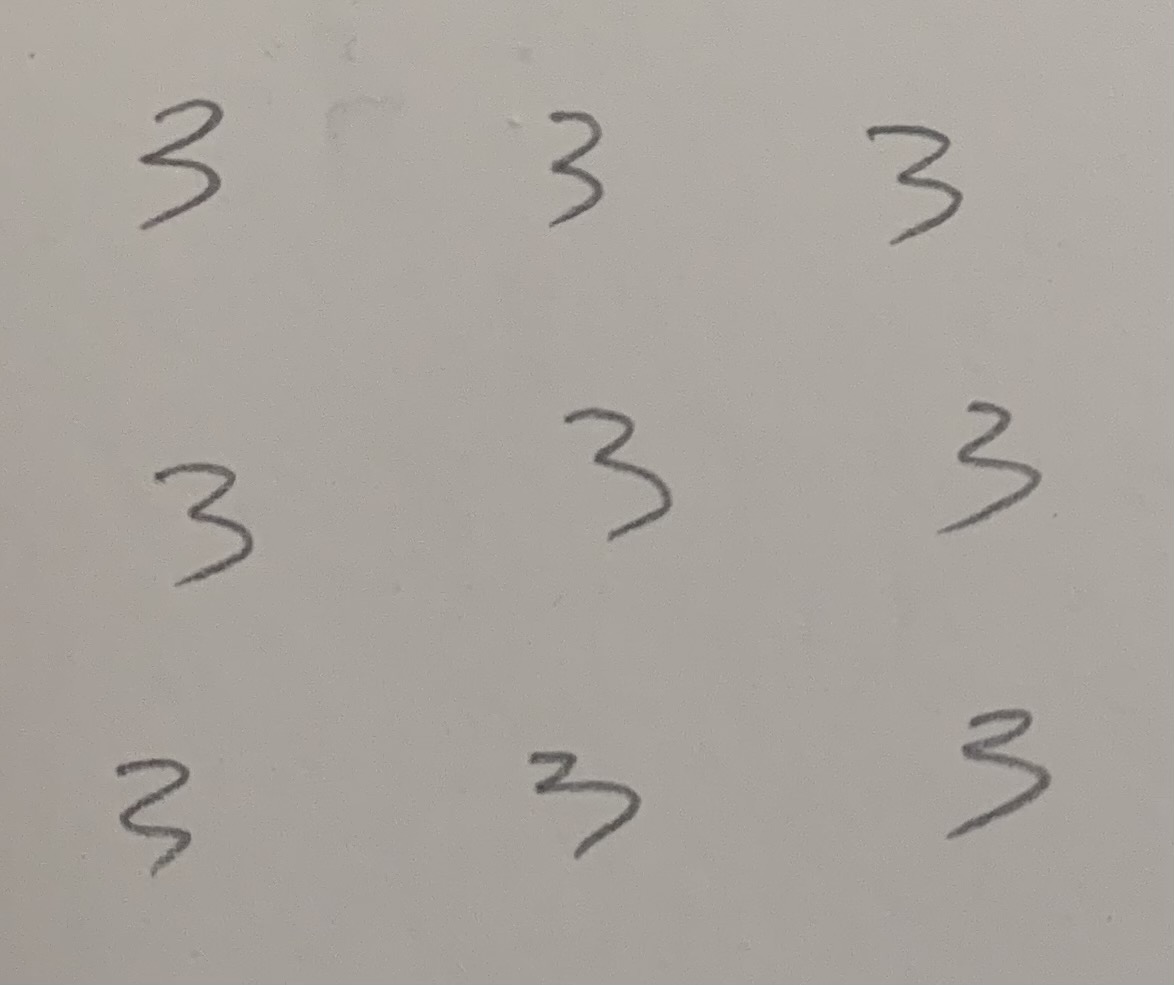 3 3 3
3 3 3
3 3 3